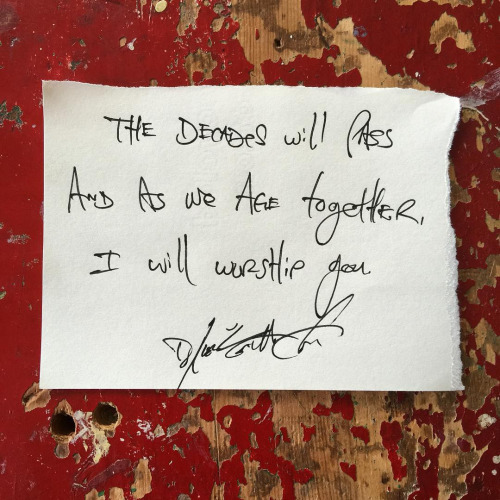 THE DECADES will PASS
AND AS we AGE together,
I will worship you